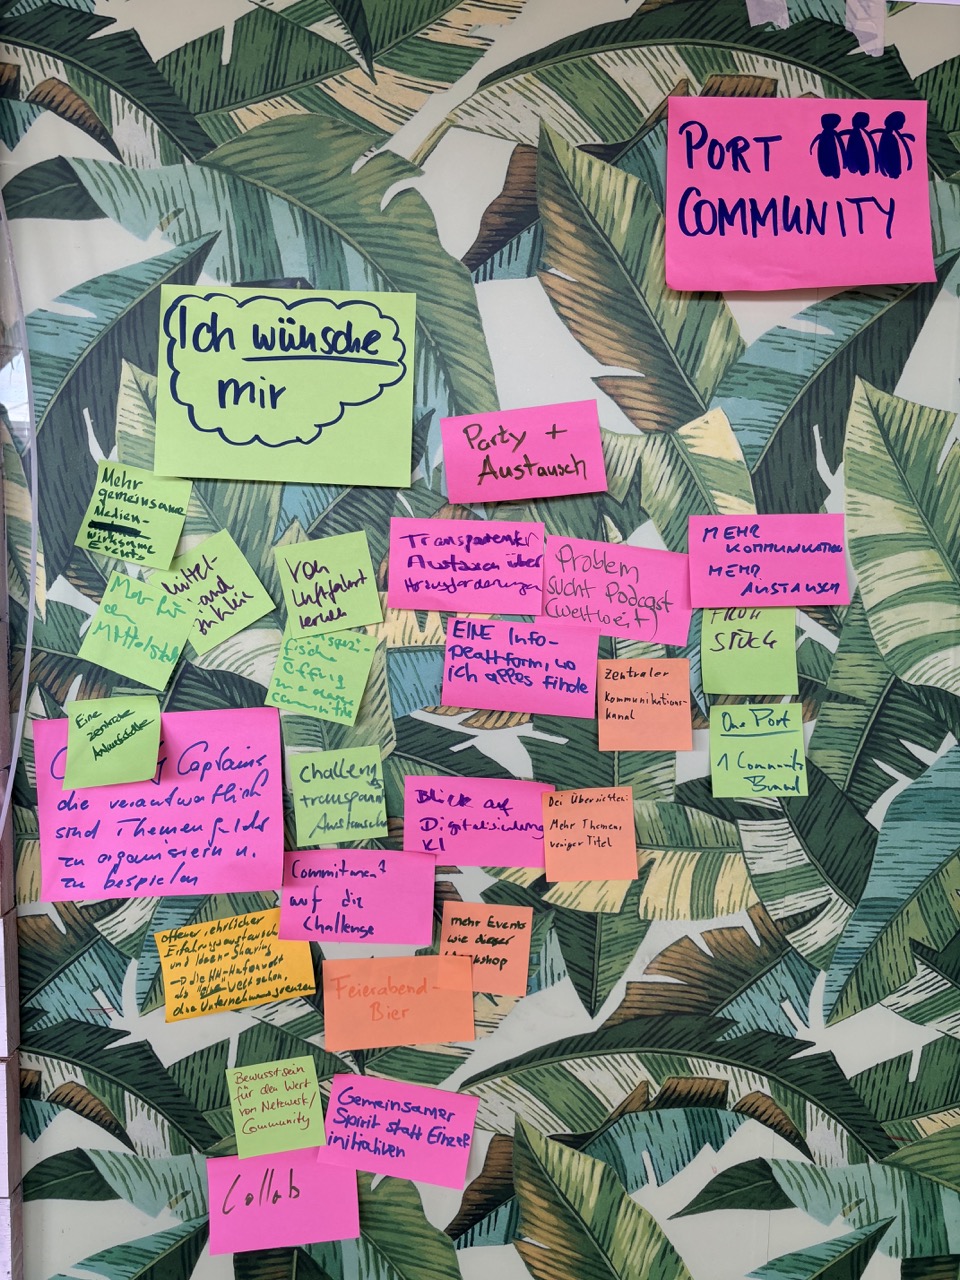 PORT
COMMUNITY
Ich wünsche
mir
Party +
Austausch
Mehr
gemeinsame
Medien-
wirksame
Events
Mittel-
und
Mehr für
Mittelst
Von
Luftfahrt
lernen
Transparenter
Austausch über
Herausforderungen
Problem
sucht Podcast
(weltweit)
MEHR
KOMMUNIKATION
MEHR
AUSTAUSCH
EINE Info-
plattform, wo
ich alles finde
zentraler
Kommunikations-
kanal
FRÜH
STÜCK
One Port
1 Community
Brand
Eine
zentrale
Anlaufstelle
Captains
die verantwortlich
sind Themenfelder
zu organisieren u.
zu bespielen
Challeng
transparent
Austausch
Blick auf
Digitalisierung
KI
Bei Übersichten:
Mehr Themen,
weniger Titel
Commitment
auf die
Challenge
offener, ehrlicher
Erfahrungsaustausch
und Ideen-Sharing
→ die HH-Hafenwelt
als eine Welt sehen,
ohne Unternehmensgrenzen
mehr Events
wie dieser
Workshop
Feierabend-
Bier
Bewusstsein
für den Wert
von Netzwerk/
Community
Gemeinsamer
Spirit statt Einzel
initiativen
Collab